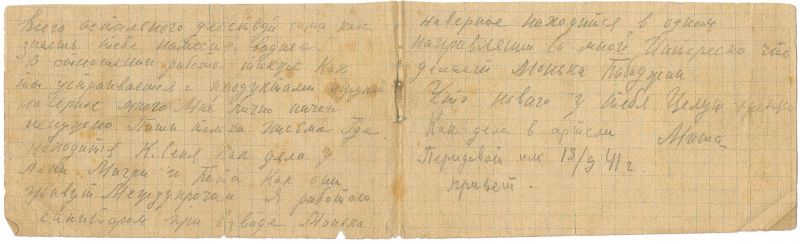 всего остального действуй сама как
знаешь тебе на месте виднее
В отношении работы также Как
ты устраиваешся с продуктами
наверное много Мне лично ничего
не нужно Пиши только письма Где
находится Как дела у
Лени и Как они
живут Между прочим Я работаю
санитаром при взводе Монька
наверное находится в одном
направлении со мной Интересно что
делает Монька
Что нового у тебя Целую крепко
Как дела в артели Миша
Передавай им 13/9 41 г.
привет.